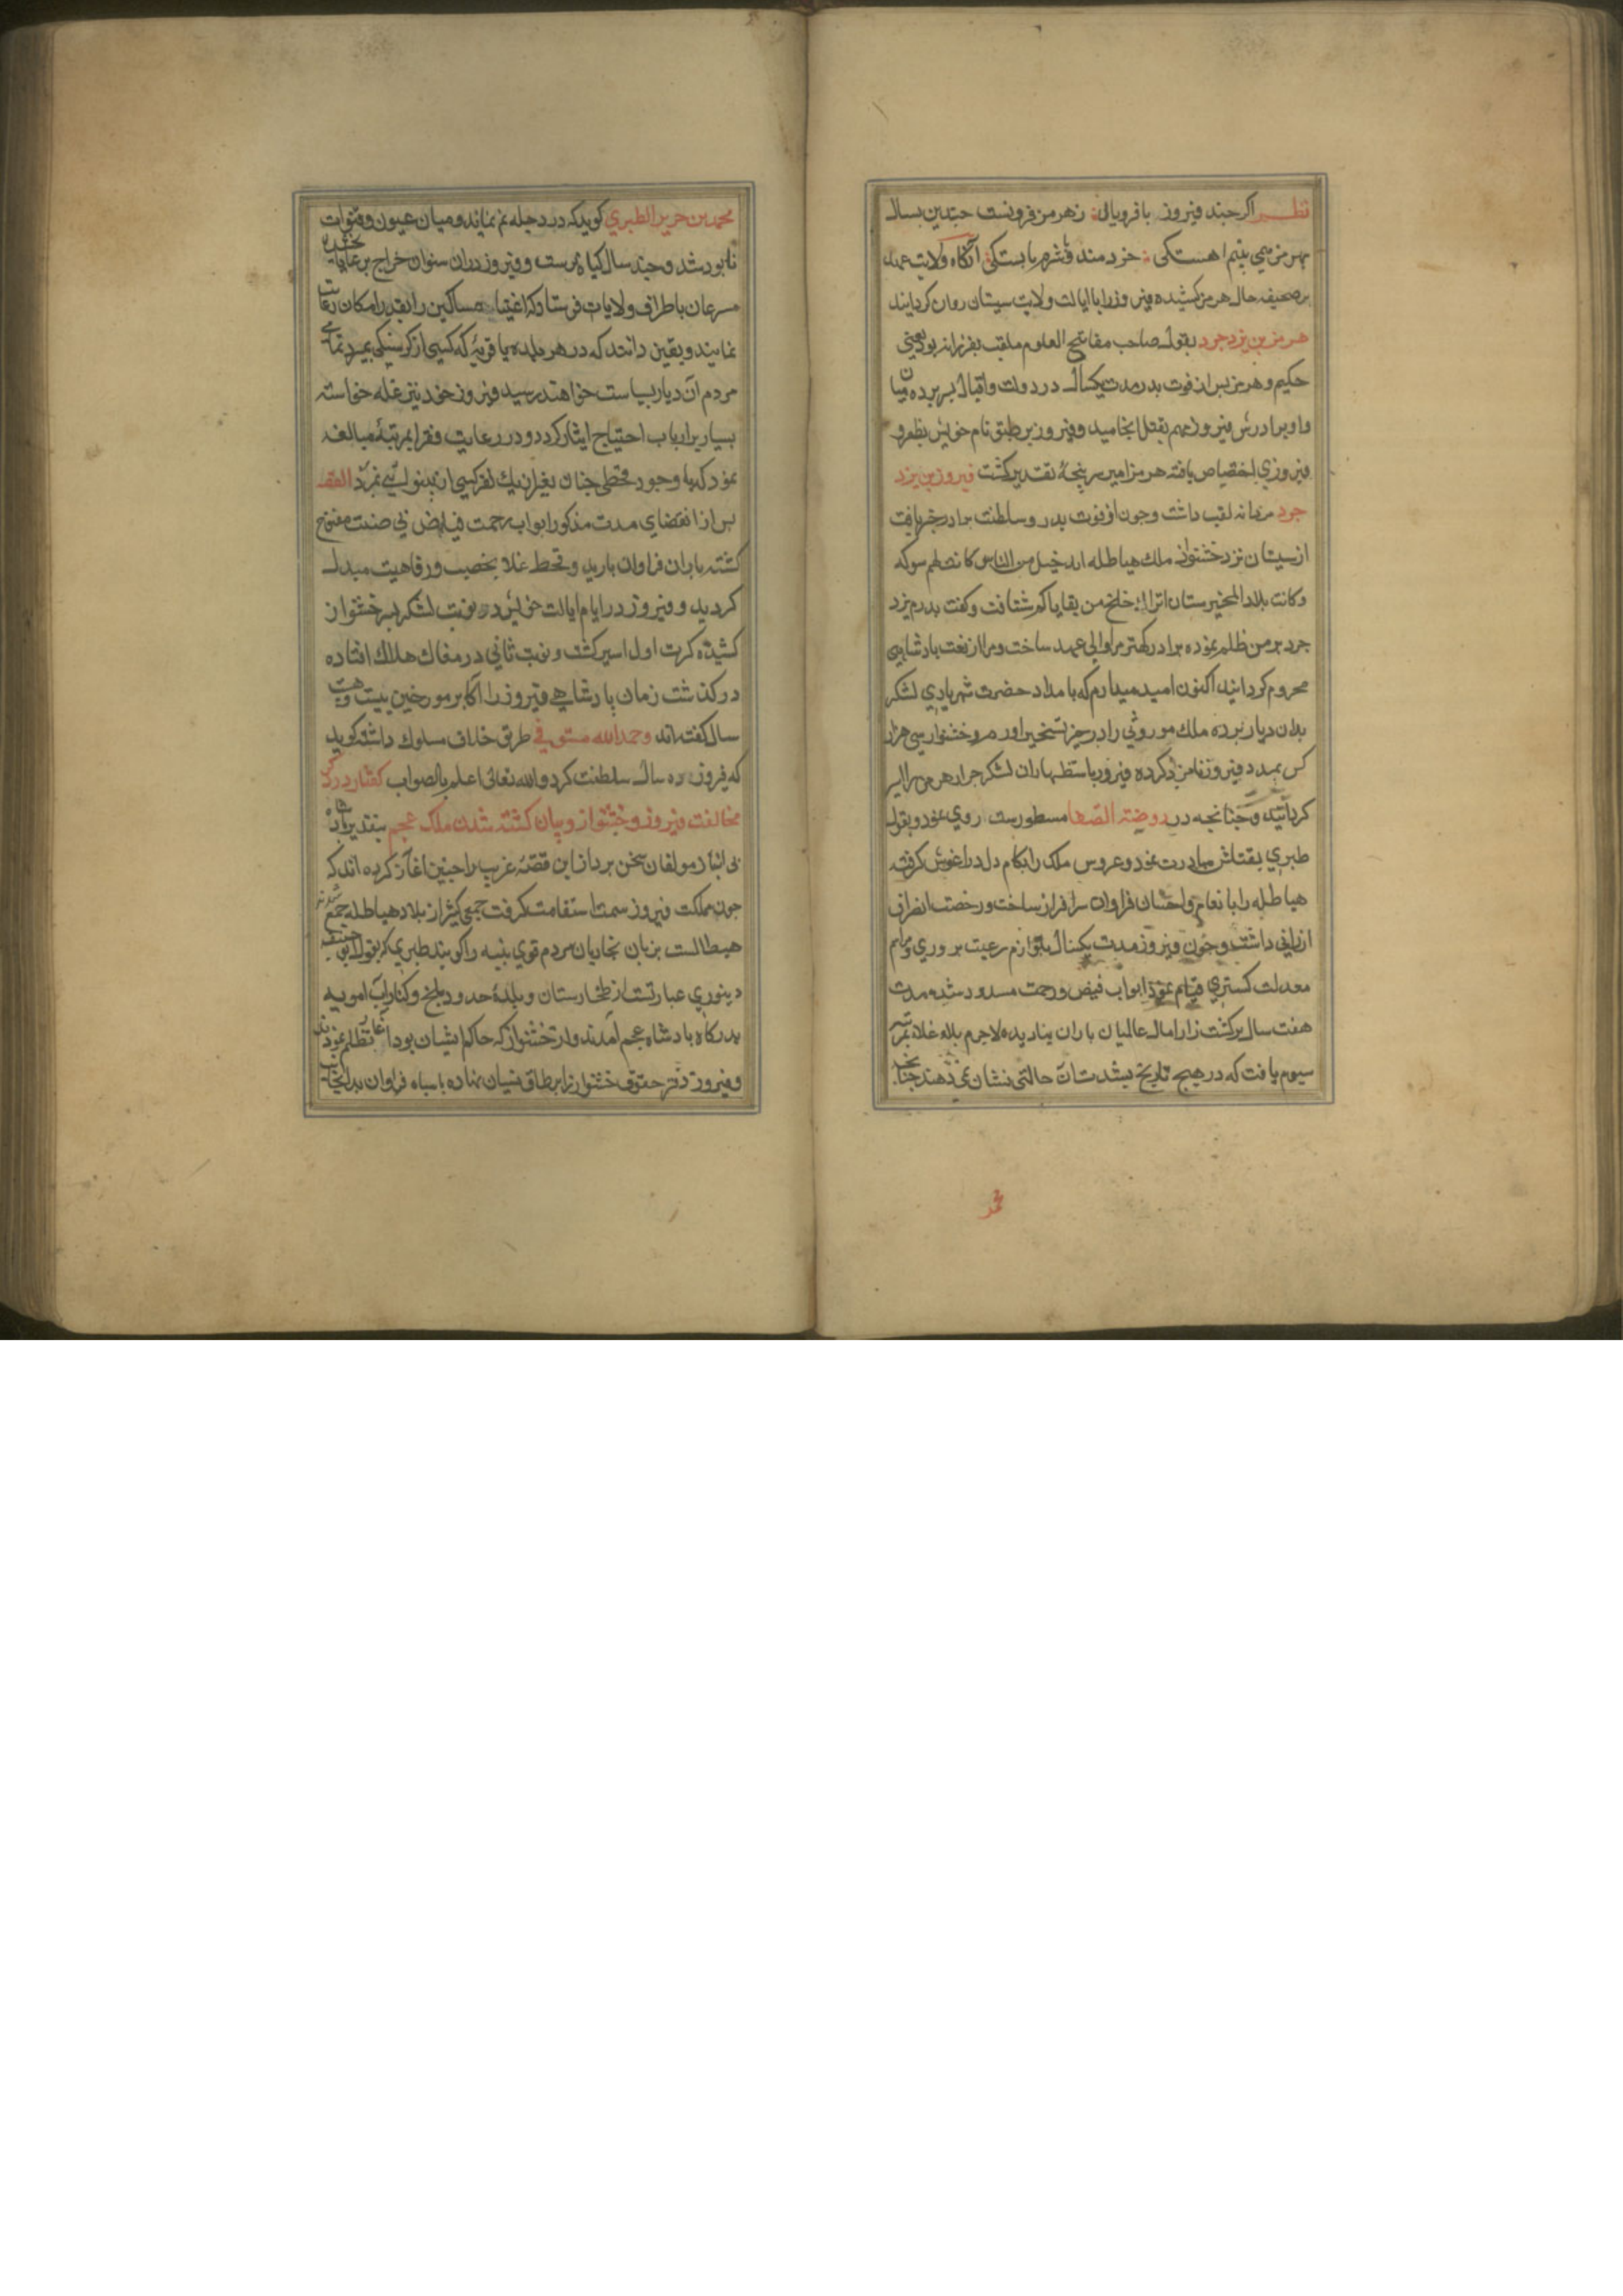 نظم اکرچند فیروز با فرویال زهرمز فرونست چندین بسال
بهرمز همی بینم اهستکی خردمند و شرم بایستکی آنکاه ولایت عهد
بر صحیفه حال هرمز کشیده فیروز را باایالت ولایت سیستان روان کردانید
هرمز بن یزدجرد بقول صاحب مفاتیح العلوم ملقب بفرزانه بود یعنی
حکیم و هرمز بس از فوت بدر مدت یکسال در دولت واقبال بسر برده میان
او و برادرش فیروز مهم بقتل انجامید و فیروز بر طبق نام خویش بظفر و
فیروزی اختصاص یافته هرمز اسیر سرپنجهٔ تقدیر کشت فیروز بن یزد
جرد مردانه لقب داشت وجون از فوت بدر و سلطنت برادر خبر یافت
از سیستان نزد خشنواز ملک هیاطله
وکانت بلاد طخیرستان اتراک خلج من بقایاکم شتافت وکفت بدرم یزد
جرد بر من ظلم نموده برادر کهتر مرا ولی عهد ساخت ومرا از نعت بادشاهی
محروم کردانید اکنون امید میدارم که بامداد حضرت شهریاری لشکر
بدان دیار برده ملک موروثی را در حیز تسخیر اورم و خشنواز سی هزار
کس بمدد فیروز نامزد کرده فیروز باستظهار ان لشکر جرار هرمز را اسیر
کردانید وجنانجه در روضة الصفا مسطورست روی نمود و بقول
طبری بقتلش مبادرت نمود و عروس ملک را بکام دل در اغوش کرفته
هیاطله را بانعام و احسان فراوان سرافراز ساخت و رخصت انصراف
ارزانی داشت وجون فیروز مدت یکسال بلوازم رعیت بروری و مراسم
معدلت کستری قیام نمود ابواب فیض ورحمت مسدود شده مدت
هفت سال بر کشت زار امال عالمیان باران نبارید لاجرم بلاء غلا بمرتبه
شیوع یافت که در هیج تاریخ بشدت آن حالتی نشان نمی دهند جنانجه
محمد بن جریر الطبری کوید که در دجله نم نماند و میاه عیون و قنوات
نابود شد و جند سال کیاه نرست و فیروز در ان سنوات خراج بر عایا بخشیده
مسرعان باطراف ولایات فرستاد که اغنیا مساکین را بقدر امکان رعایت
نمایند ویقین دانند که در هر بلده یا قریه که کسی از کرسنکی بمیرد تمامی
مردم آن دیار بسیاست خواهند رسید و فیروز خود نیز غله خواسته
بسیار بر ارباب احتیاج ایثار کرد و در رعایت فقرا بمرتبهٔ مبالغه
نمود که با وجود قحطی جنان بغیر از یک نفر کسی از بینوایی نمرد القصه
بس از انقضای مدت مذکور ابواب رحمت فیاض بی ضنت مفتوح
کشته باران فراوان بارید و قحط غلا بخصب و رفاهیت مبدل
کردید و فیروز در ایام ایالت خویش دو نوبت لشکر بسر خشنواز
کشیده کرت اول اسیر کشت و نوبت ثانی در مغاک هلاک افتاده
درکذشت زمان بادشاهی فیروز را اکابر مورخین بیست و هشت
سال کفته اند و حمد الله مستوفی طریق خلاف مسلوک داشته کوید
که فیروز ده سال سلطنت کرد والله تعالی اعلم بالصواب کفتار در ذکر
مخالفت فیروز و خشنواز و بیان کشته شدن ملک عجم بتقدیر بادشاه
بی انباز مولفان سخن برداز این قصهٔ غریب را جنین اغاز کرده اند که
جون مملکت فیروز سمت استقامت کرفت جمعی کثیر از بلاد هیاطله جمع شدند
هیطال است بزبان بخاریان مردم قوی بنیه را کویند طبری که بقول ابو حنیفه
دینوری عبارتست از طخارستان و بلدهٔ حدود بلخ و کنار آب امویه
بدرکاه بادشاه عجم آمدند و از خشنواز که حاکم ایشان بود اغاز تظلم نمودند
و فیروز دفتر حقوق خشنواز را بر طاق نسیان نهاده با سباه فراوان بدانجانب
محمد